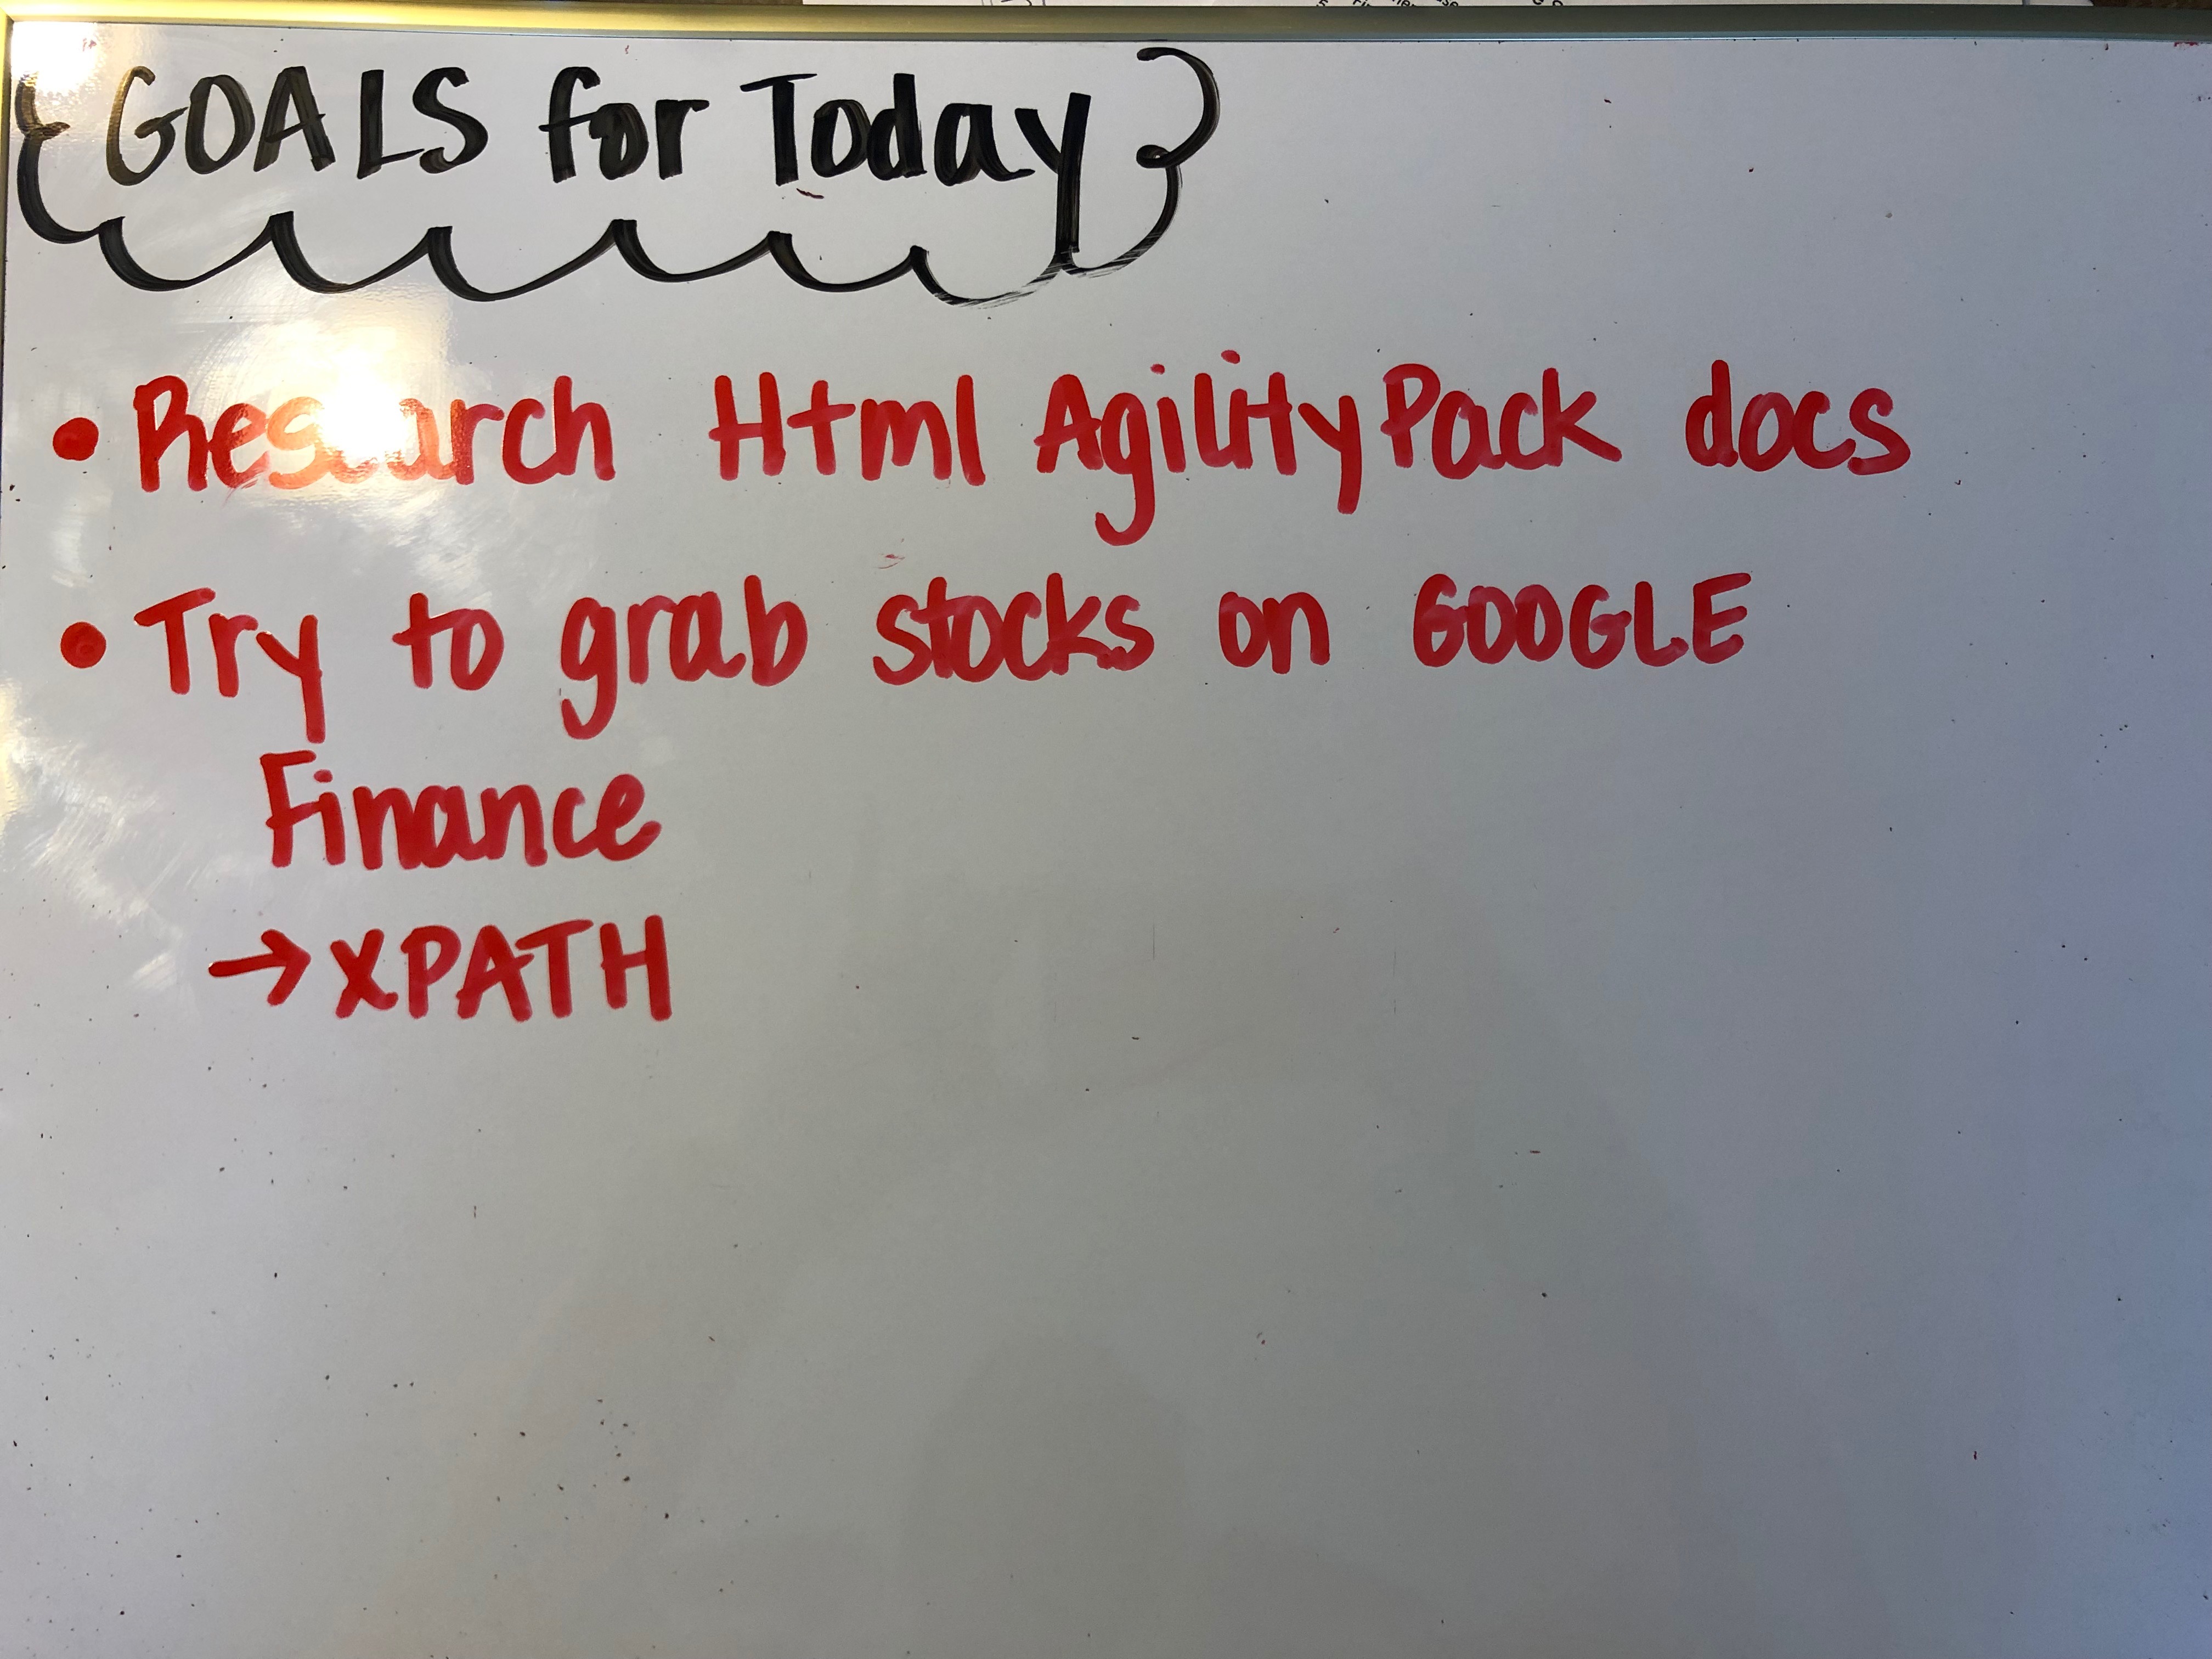 GOALS for Today
• Research Html AgilityPack docs
• Try to grab stocks on GOOGLE
Finance
→ XPATH